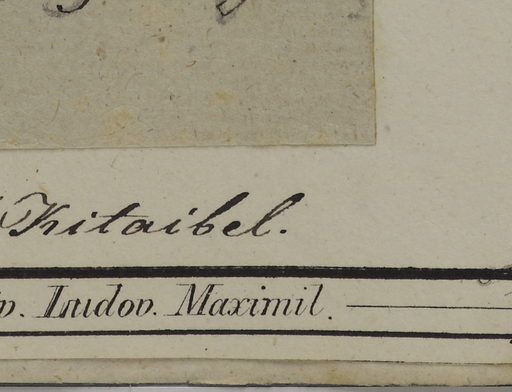 Kitaibel.
Ludov. Maximil.